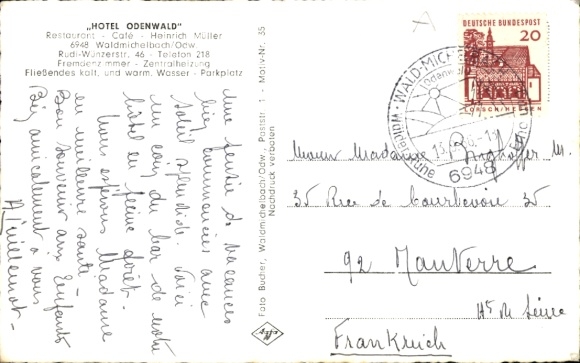 „HOTEL ODENWALD"
Restaurant - Café - Heinrich Müller
6948 Waldmichelbach/Odw.
Rudi-Wünzerstr. 46 - Telefon 218
Fremdenzimmer - Zentralheizung
Fließendes kalt. und warm. Wasser - Parkplatz
une fin de vacances
bien commencées avec
soleil splendide. Voici
un coin du bar de notre
hôtel en pleine forêt.
Nous espérons Madame
en meilleure santé
Bon souvenir aux Enfants
Bien amicalement à vous
Foto Bucher, Waldmichelbach/Odw., Poststr. 1 - Motiv-Nr. 35
Nachdruck verboten
DEUTSCHE BUNDESPOST
20
LORSCH/HESSEN
WALD-MICHELBACH
Odenwald
6948
Monsieur Madame M.
35 Rue de Courbevoie 35
92 Nanterre
Hts de Seine
Frankreich